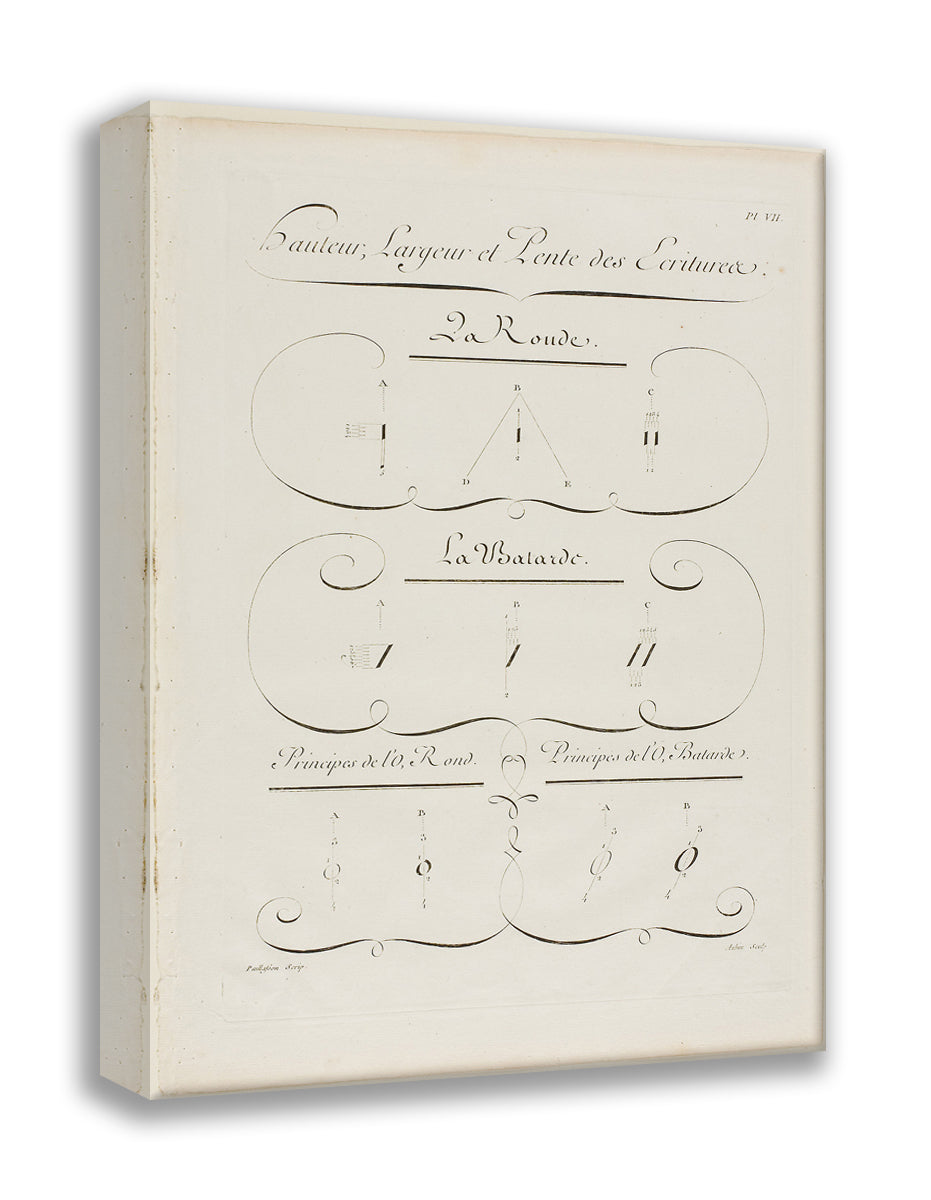 Pl VII.
Hauteur, Largeur et Pente des Ecritures.
La Ronde.
A B C
D E
La Batarde.
A B C
Principes de l'O, Rond. Principes de l'O, Batarde.
A B A B
3 3 3 3
4 4 4 4
Paillasson Scrip. Aubin Sculp.